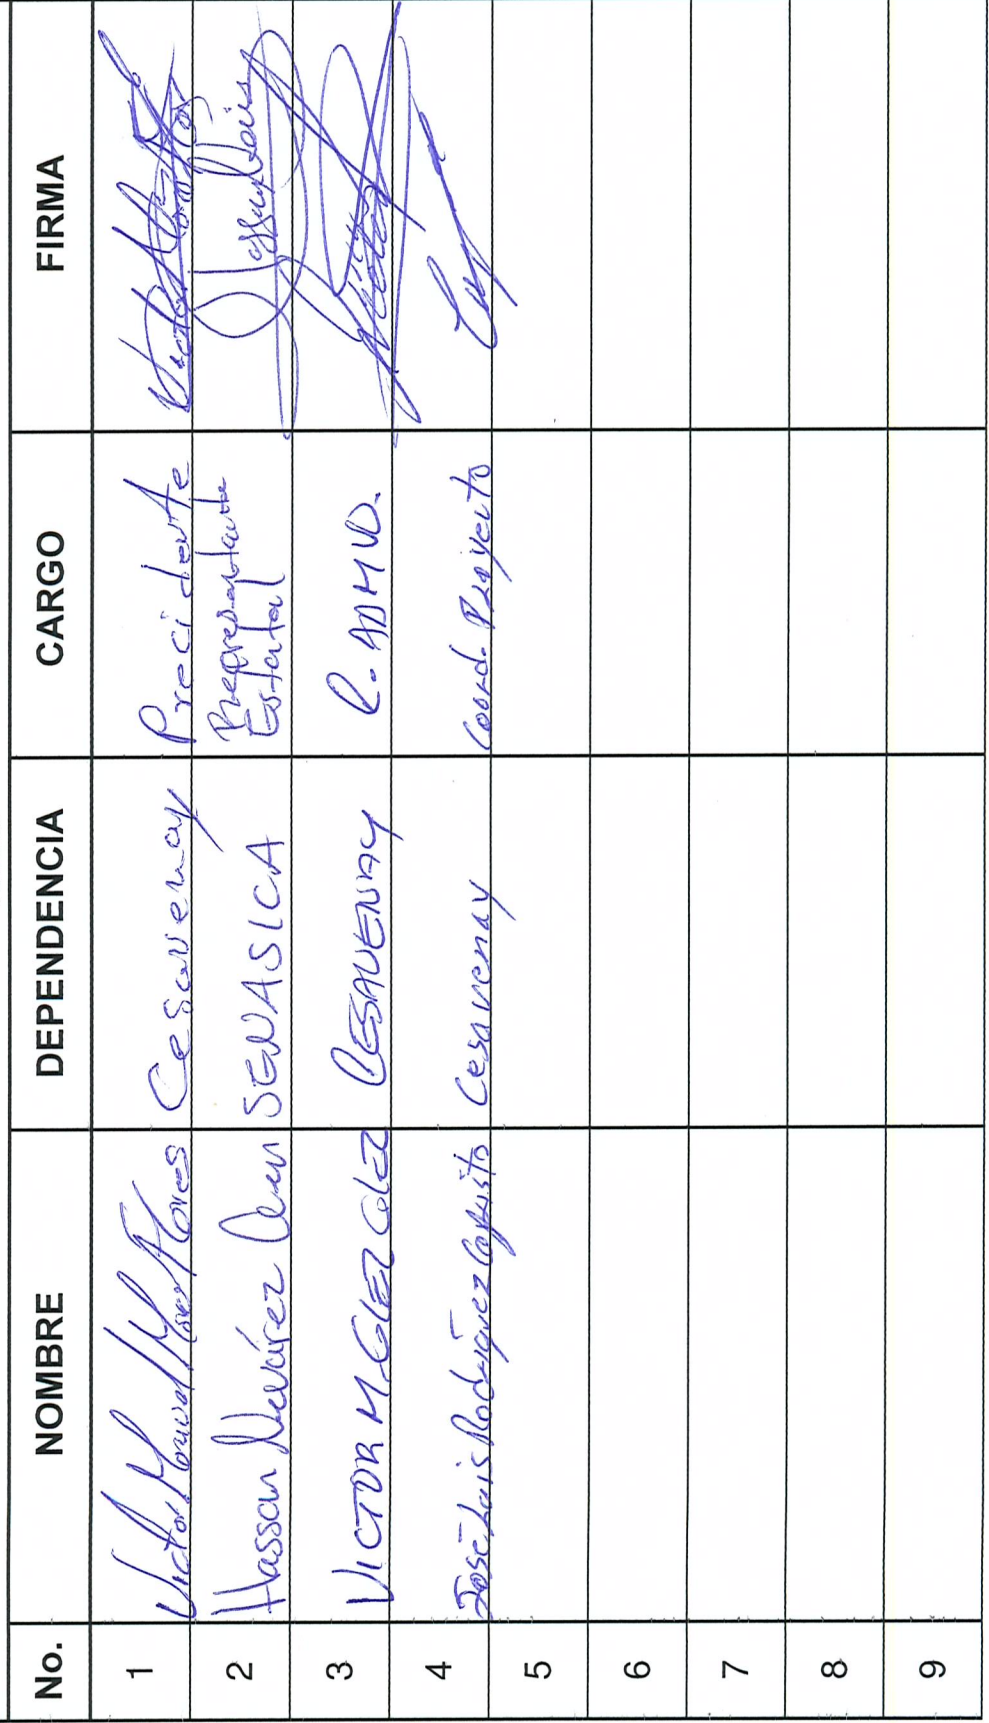 No. NOMBRE DEPENDENCIA CARGO FIRMA
1 Victor Manuel Flores Cesavenay Precidente
2 Hassan Nevárez SENASICA Representante
Estatal
3 VICTOR M. GLEZ CESAVENAY C. ADMVO.
4 José Luis Rodríguez Cesavenay Coord. Proyecto
5
6
7
8
9